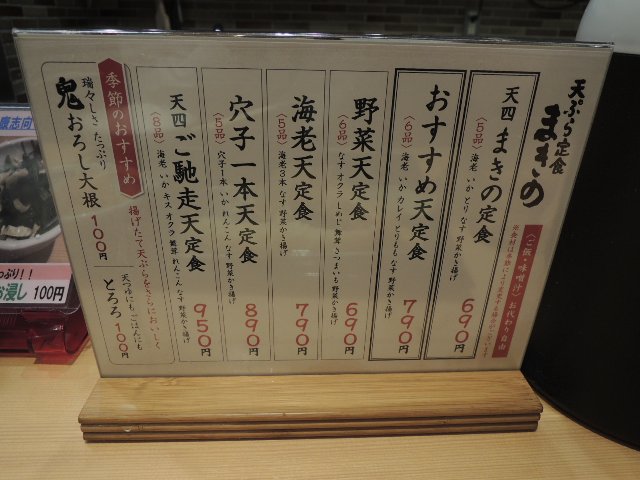 天ぷら定食
まきの
〈ご飯・味噌汁〉お代わり自由
天四
まきの定食
〈5品〉
海老 いか とり なす 野菜かき揚げ
690円
おすすめ天定食
〈6品〉
海老 いか カレイ とりもも なす 野菜かき揚げ
790円
野菜天定食
〈6品〉
なす オクラ しめじ 舞茸 さつまいも 野菜かき揚げ
690円
海老天定食
〈5品〉
海老3本 なす 野菜かき揚げ
790円
穴子一本天定食
〈5品〉
穴子1本 いか れんこん なす 野菜かき揚げ
890円
天四
ご馳走天定食
〈8品〉
海老 いか キス オクラ 舞茸 れんこん なす 野菜かき揚げ
950円
季節のおすすめ
揚げたて天ぷらをさらにおいしく
瑞々しさたっぷり
鬼おろし大根 100円
天つゆにもごはんにも
とろろ 100円
志向
っぷり!!
お浸し 100円